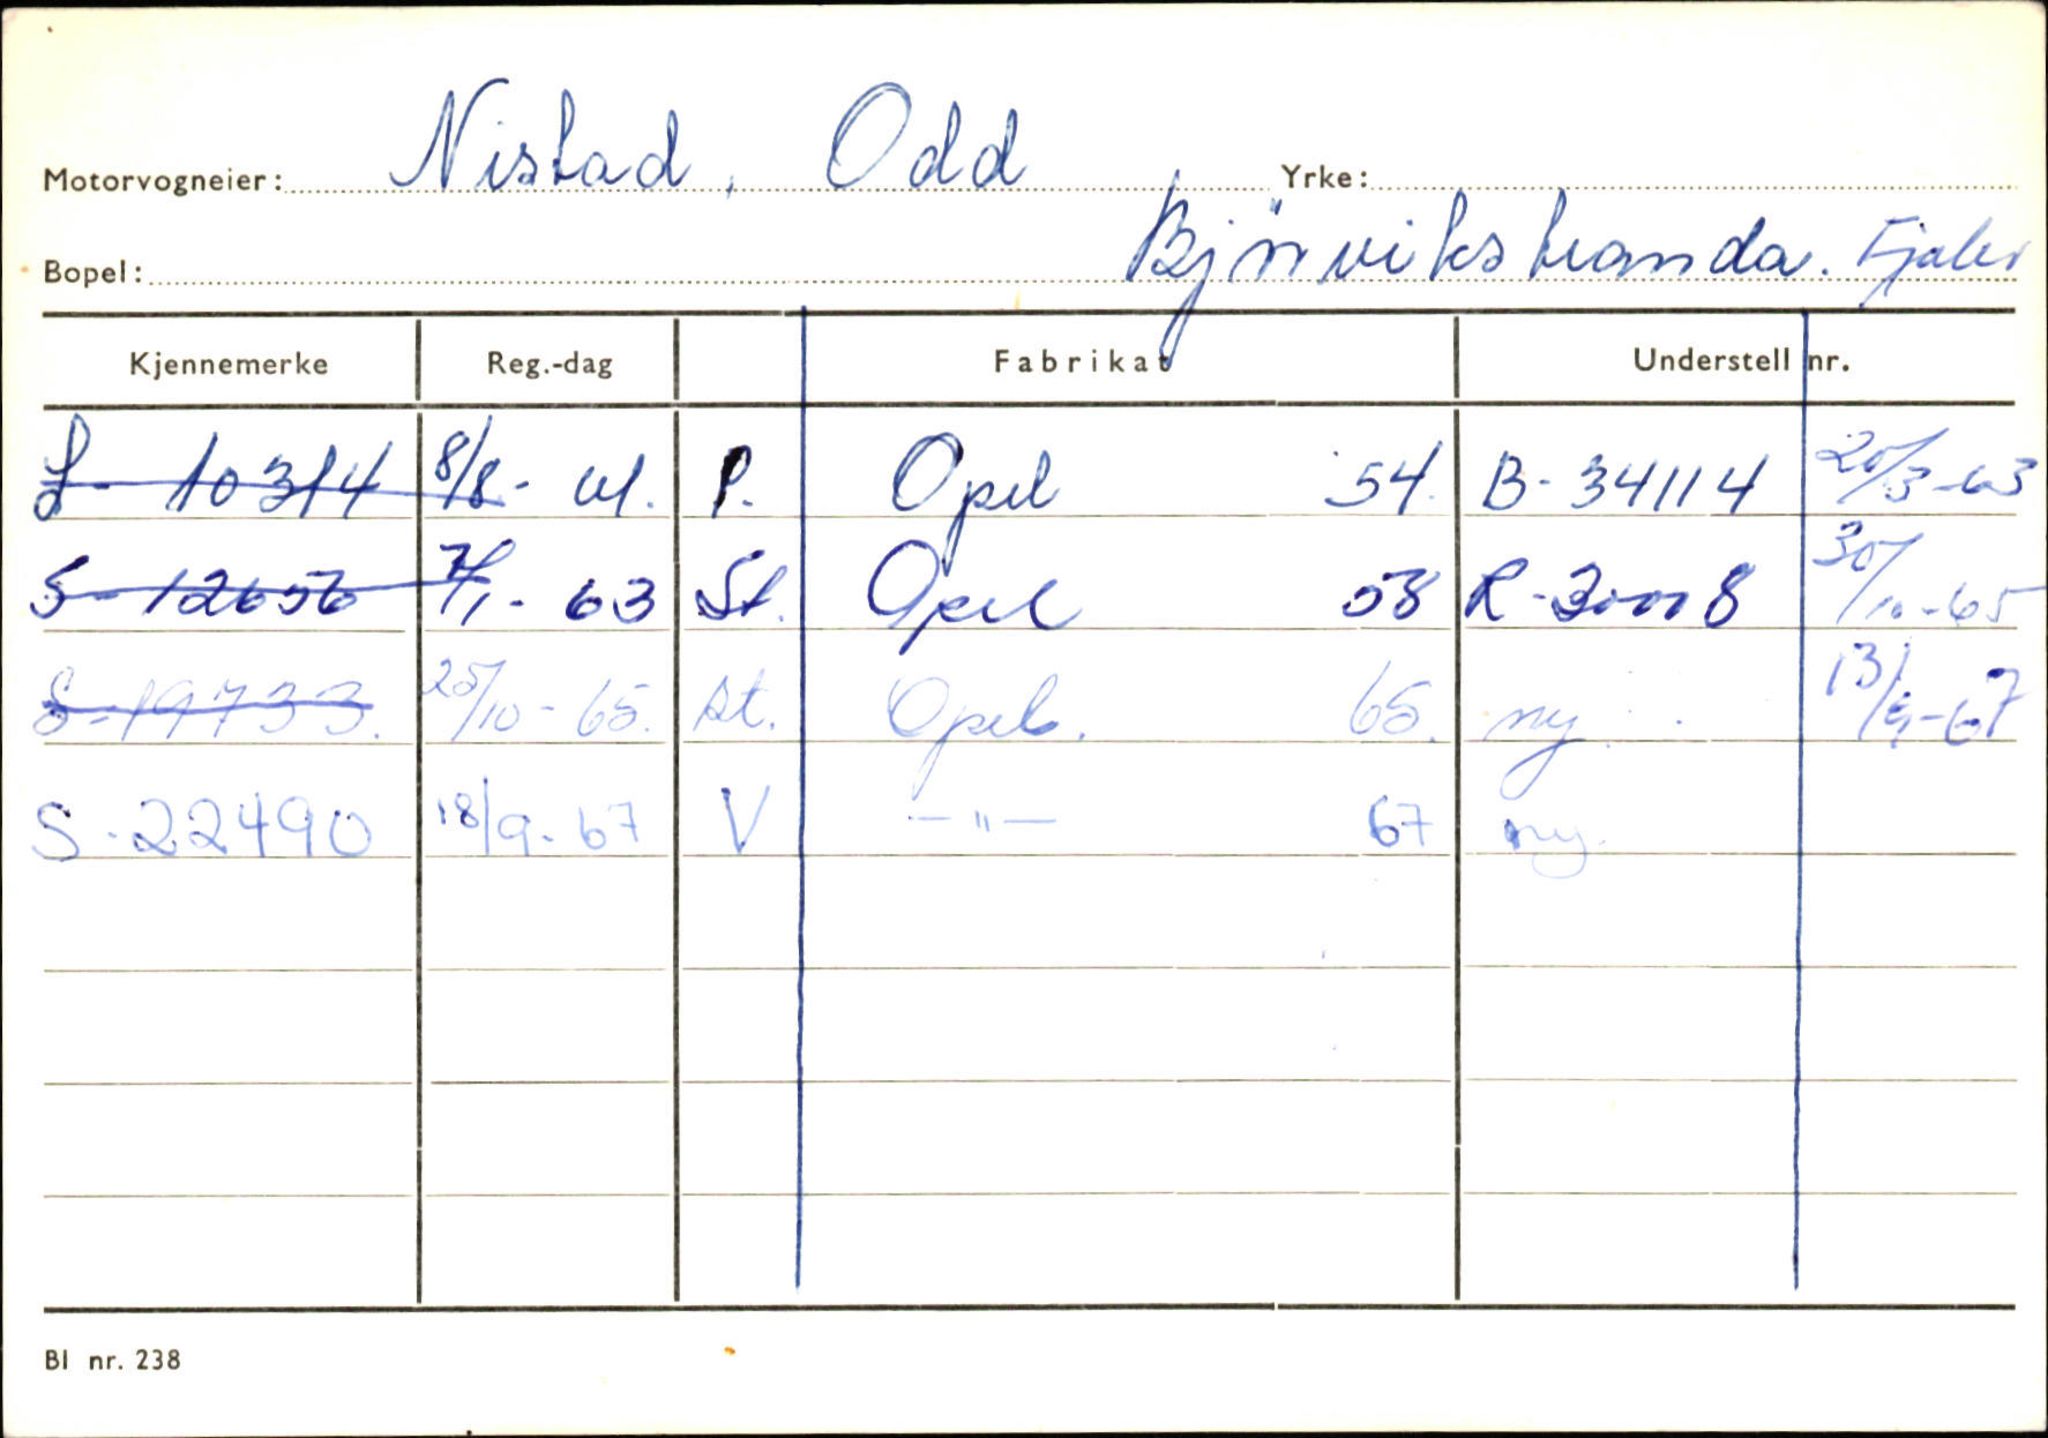 Motorvogneier: Nistad, Odd Yrke:
Bopel: Bjørvikstranda. Fjaler
Kjennemerke Reg.-dag Fabrikat Understell nr.
S- 10314 8/8- 61. P. Opel 54. B-34114 20/3-63
S-12656 7/1- 63 St. Opel 58 R-30008 30/10-65
S-19733. 25/10-65. st. Opel. 65. ny. 13/9-67
S-22490 18/9-67 V —"— 67 ny.
Bl nr. 238